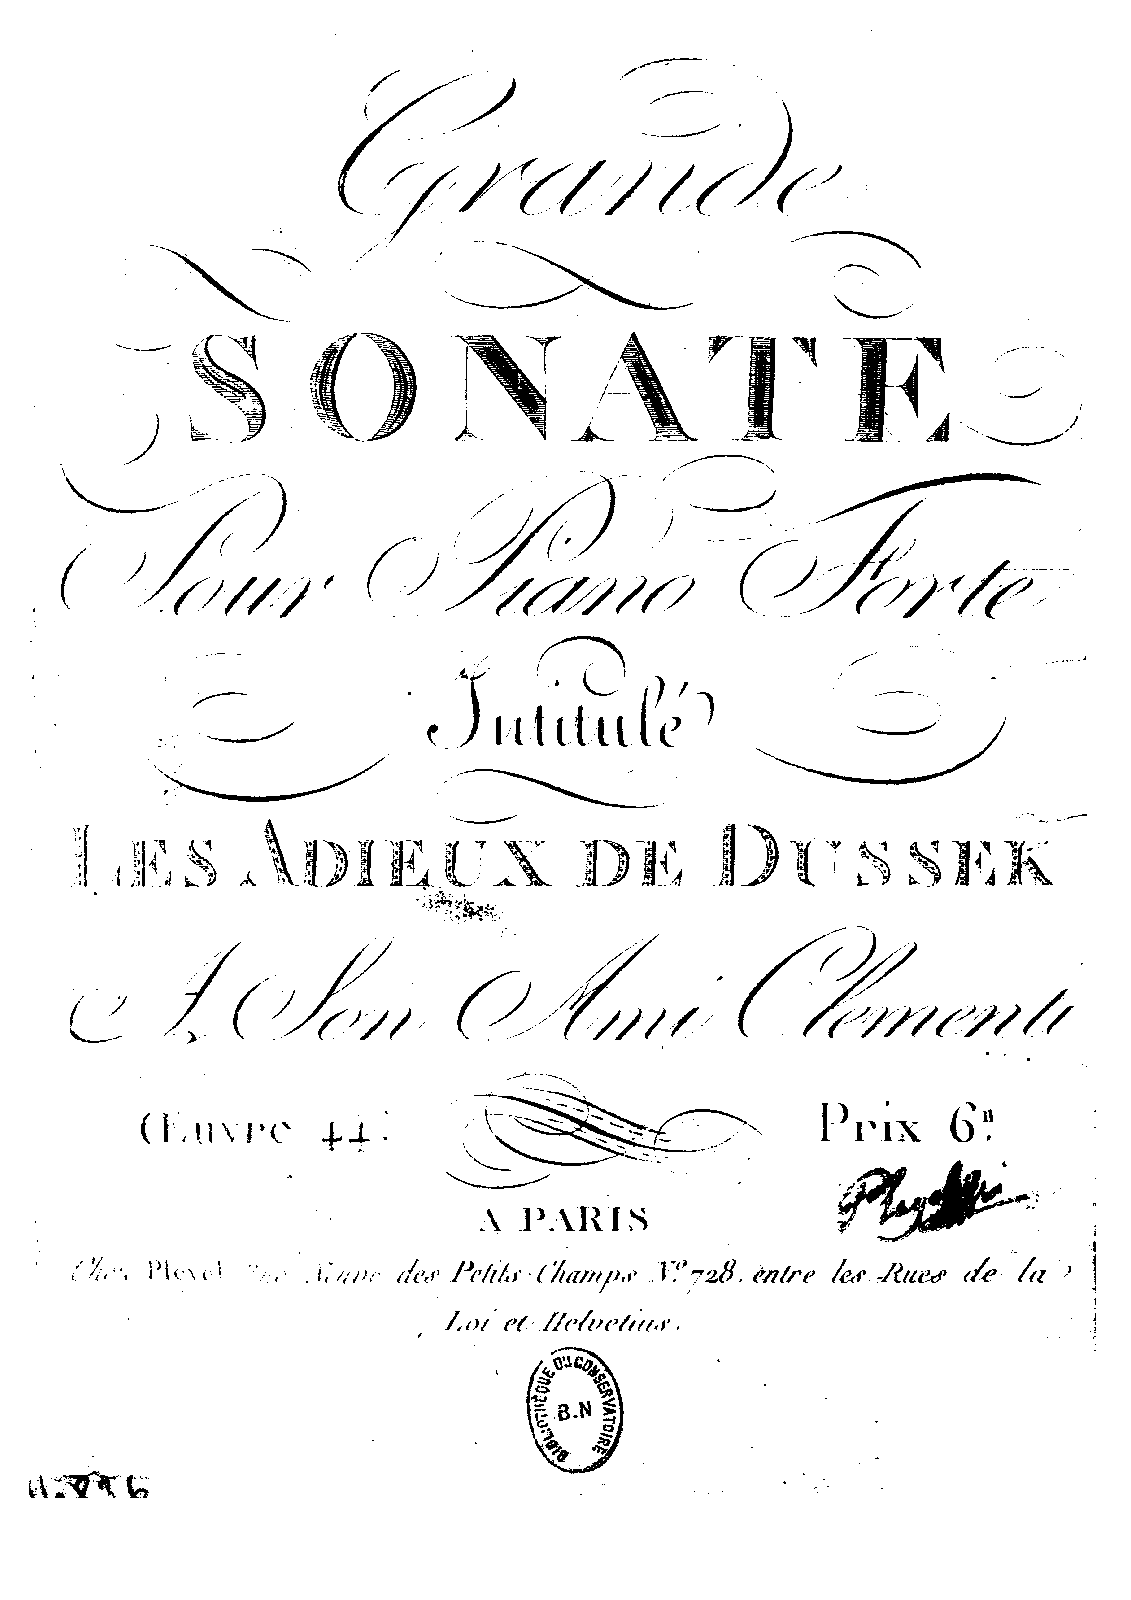 Grande
SONATE
Pour Piano Forte
Intitulé
LES ADIEUX DE DUSSEK
A Son Ami Clementi
Œuvre 44. Prix 6ᵗᵗ
Pleyel
A PARIS
Chez Pleyel Rue Neuve des Petits-Champs Nº 728. entre les Rues de la
Loi et Helvetius.
BIBLIOTHÈQUE DU CONSERVATOIRE
B.N